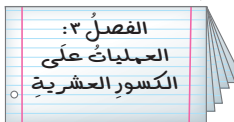 الفصلُ ٣:
العملياتُ علَى
الكسورِ العشريةِ